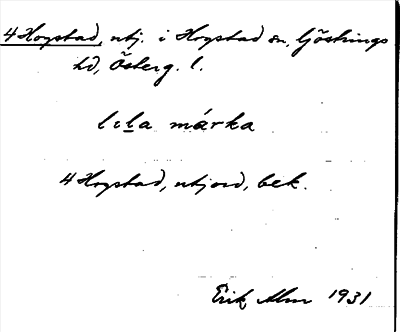 4 Hogstad, utj. i Hogstad sn, Göstrings
hd, Österg. l.
lıla márka
4 Hogstad, utjord, bek.
Erik Alm 1931